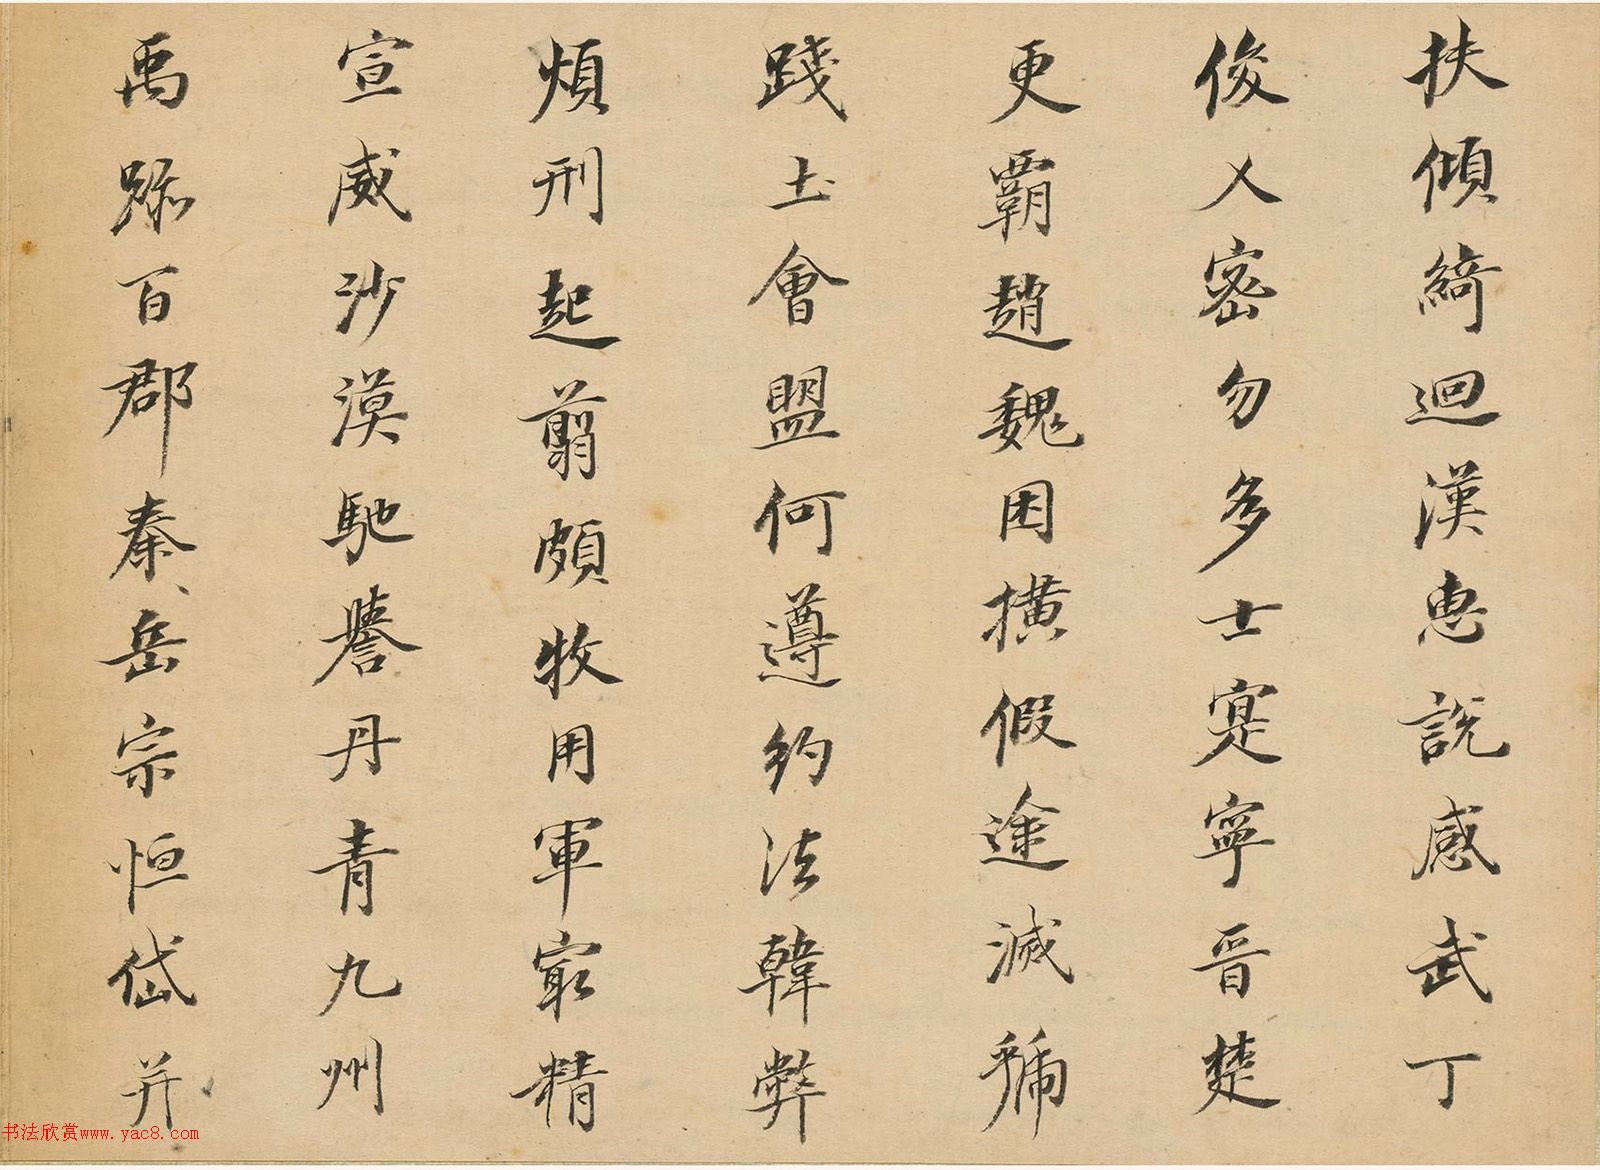 扶傾綺迴漢惠說感武丁
俊乂密勿多士寔寧晉楚
更霸趙魏困橫假途滅虢
踐土會盟何遵約法韓弊
煩刑起翦頗牧用軍最精
宣威沙漠馳譽丹青九州
禹跡百郡秦岳宗恒岱并
书法欣赏www.yac8.com